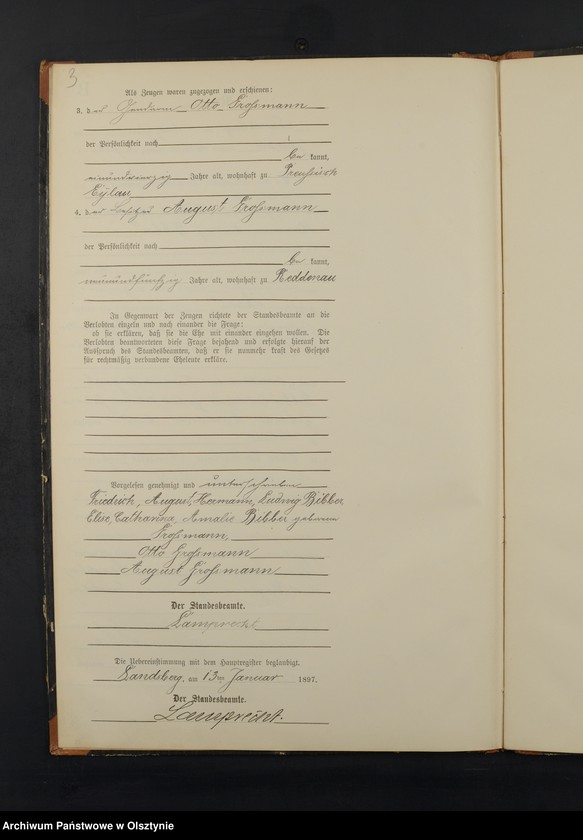 3
Als Zeugen waren zugezogen und erschienen:
3. der Gendarm Otto Großmann
der Persönlichkeit nach
be kannt,
einundvierzig Jahre alt, wohnhaft zu Preußisch
Eylau
4. der Besitzer August Großmann
der Persönlichkeit nach
be kannt,
neunundfünfzig Jahre alt, wohnhaft zu Reddenau
In Gegenwart der Zeugen richtete der Standesbeamte an die
Verlobten einzeln und nach einander die Frage:
ob sie erklären, daß sie die Ehe mit einander eingehen wollen. Die
Verlobten beantworteten diese Frage bejahend und erfolgte hierauf der
Ausspruch des Standesbeamten, daß er sie nunmehr kraft des Gesetzes
für rechtmäßig verbundene Eheleute erkläre.
Vorgelesen genehmigt und unterschrieben
Friedrich, August, Hermann, Ludwig Bibber,
Elise, Catharina, Amalie Bibber geborene
Großmann,
Otto Großmann
August Großmann
Der Standesbeamte.
Lamprecht.
Die Uebereinstimmung mit dem Hauptregister beglaubigt.
Landsberg, am 13ten Januar 1897.
Der Standesbeamte.
Lamprecht.
Archiwum Państwowe w Olsztynie